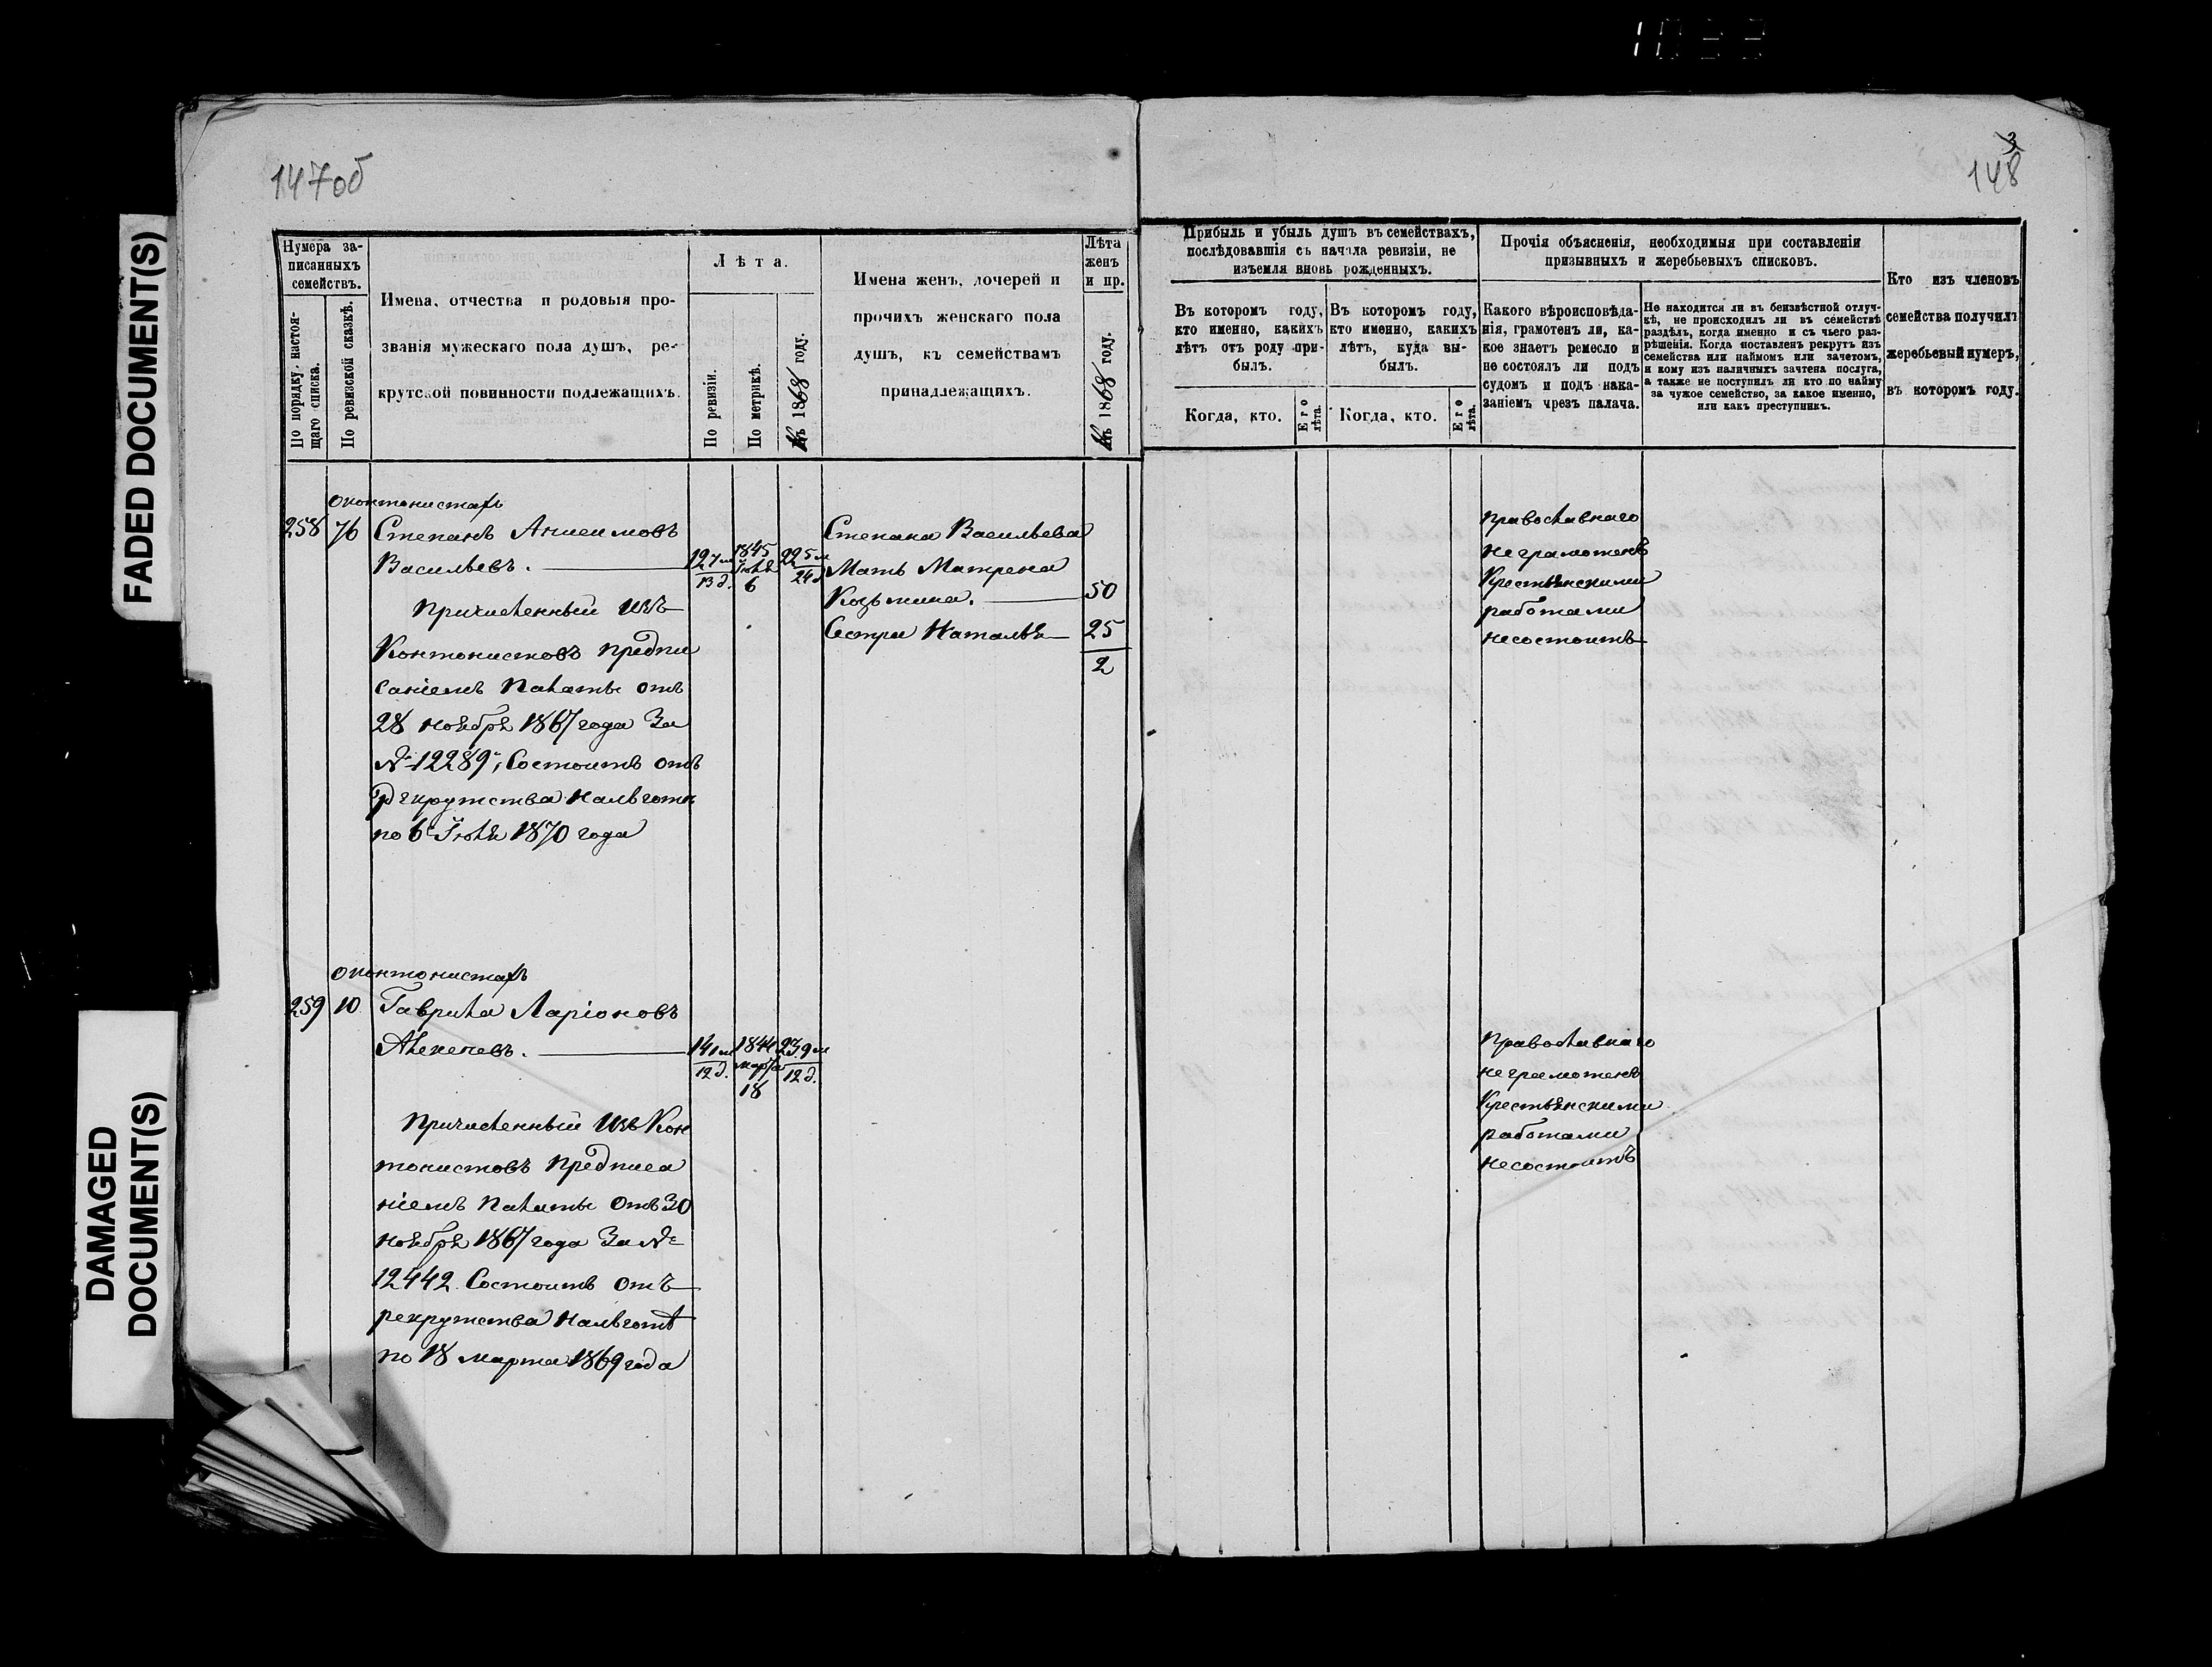 1033
FADED DOCUMENT(S)
DAMAGED
DOCUMENT(S)
147об
3
148
Нумера за-
писанныхъ
семействъ.
По порядку, настоя-
щаго списка.
По ревизской сказкѣ.
Имена, отчества и родовыя про-
званія мужескаго пола душъ, ре-
крутской повинности подлежащихъ.
Лѣта.
По ревизіи.
По метрикѣ.
Къ 1868 году.
Имена женъ, дочерей и
прочихъ женскаго пола
душъ, къ семействамъ
принадлежащихъ.
Лѣта
женъ
и пр.
Къ 1868 году.
Прибыль и убыль душъ въ семействахъ,
послѣдовавшія съ начала ревизіи, не
изъемля вновь рожденныхъ.
Въ которомъ году,
кто именно, какихъ
лѣтъ отъ роду при-
былъ.
Когда, кто.
Его лѣта.
Въ которомъ году,
кто именно, какихъ
лѣтъ, куда вы-
былъ.
Когда, кто.
Его лѣта.
Прочія объясненія, необходимыя при составленіи
призывныхъ и жеребьевыхъ списковъ.
Какого вѣроисповѣда-
нія, грамотенъ ли, ка-
кое знаетъ ремесло и
не состоялъ ли подъ
судомъ и подъ нака-
заніемъ чрезъ палача.
Не находится ли въ безвѣстной отлуч-
кѣ, не происходилъ ли въ семействѣ
раздѣлъ, когда именно и съ чьего раз-
рѣшенія. Когда поставленъ рекрутъ изъ
семейства или наймомъ или зачетомъ,
и кому изъ наличныхъ зачтена послуга,
а также не поступилъ ли кто по найму
за чужое семейство, за какое именно,
или какъ преступникъ.
Кто изъ членовъ
семейства получилъ
жеребьевый нумеръ,
въ которомъ году.
о контонистахъ
258 76 Степанъ Анисимовъ
Васильевъ. 12 7м/13 д. 1845 Іюля 6 22 5м/24 д
Причисленный изъ
Контонистовъ предпи
саніемъ Палаты отъ
28 ноября 1867 года За
№ 12289; Состоитъ отъ
рекрутства на льготѣ
по 6е Іюля 1870 года
Степана Васильева
Мать Матрена
Козьмина. 50
Сестра Наталья 25
2
Православнаго
неграмотенъ
Крестьянскими
работами
несостоитъ
о контонистахъ
259 10 Гаврила Ларіоновъ
Алексевъ. 14 1м/12 д. 1844 марта 18 23. 9м/12 д.
Причисленный изъ Кон
тонистовъ предписа
ніемъ Палаты отъ 30
ноября 1867 года За №
12442. Состоитъ отъ
рекрутства на льготѣ
по 18 марта 1869 года
Православнаго
неграмотенъ
Крестьянскими
работами
несостоитъ